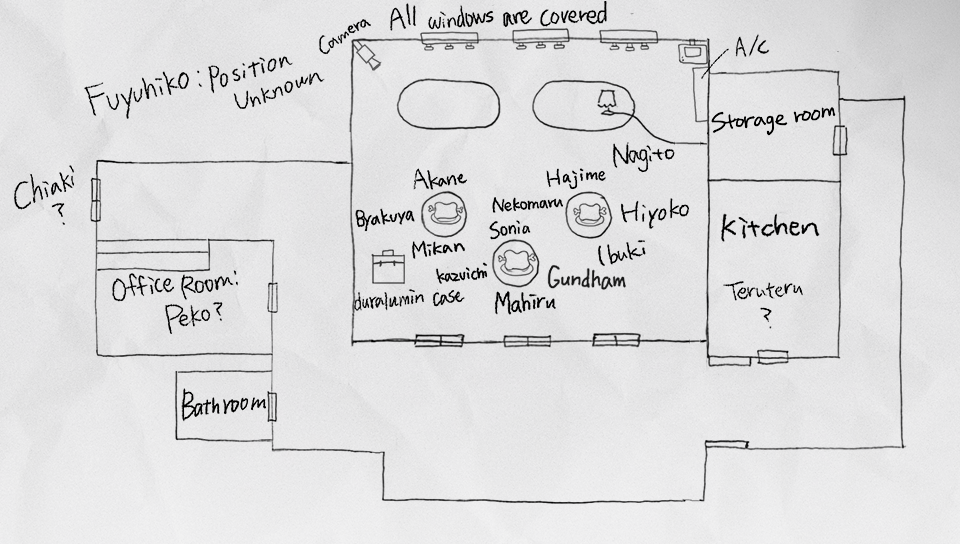 All windows are covered
Camera
Fuyuhiko: Position
Unknown
A/C
Storage room
Nagito
Chiaki
?
Akane
Hajime
Byakuya
Nekomaru
Hiyoko
Sonia
Mikan
Ibuki
Kitchen
Kazuichi
Gundham
duralumin case
Mahiru
Teruteru
?
Office Room:
Peko?
Bathroom